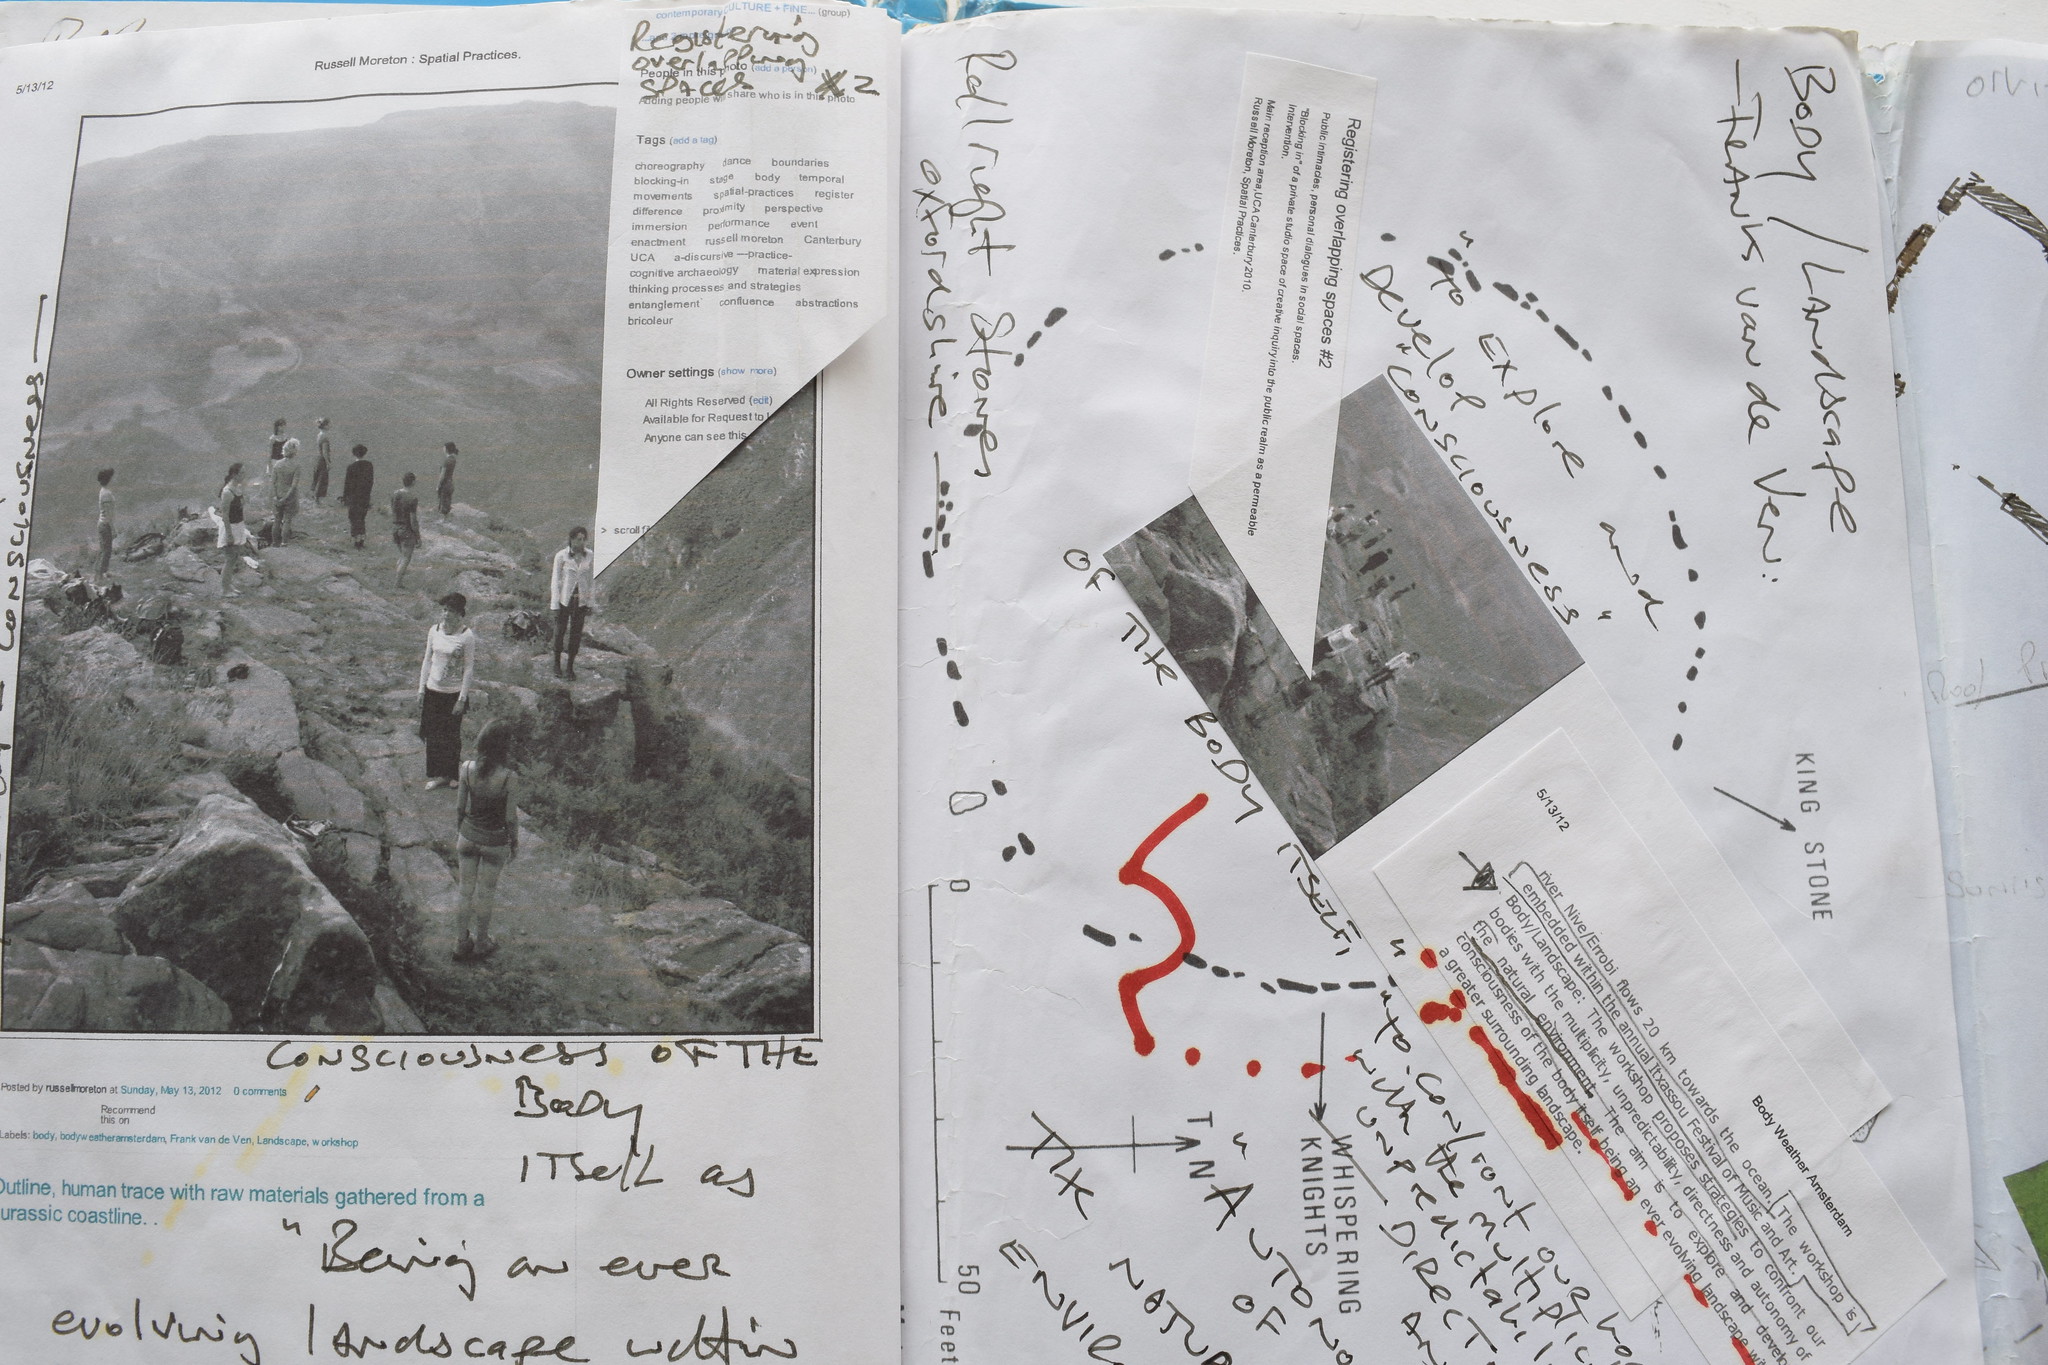 5/13/12
Russell Moreton : Spatial Practices.
contemporary CULTURE + FINE... (group)
Registering
overlapping
spaces #2
People in this photo (add a person)
Adding people will share who is in this photo
Tags (add a tag)
choreography dance boundaries
blocking-in stage body temporal
movements spatial-practices register
difference proximity perspective
immersion performance event
enactment russell moreton Canterbury
UCA a-discursive —practice-
cognitive archaeology material expression
thinking processes and strategies
entanglement confluence abstractions
bricoleur
Owner settings (show more)
All Rights Reserved (edit)
Available for Request to
Anyone can see this
> scroll
CONSCIOUSNESS
CONSCIOUSNESS OF THE
Body
ITSELF as
Posted by russellmoreton at Sunday, May 13, 2012 0 comments
Recommend
this on
Labels: body, bodyweatheramsterdam, Frank van de Ven, Landscape, workshop
Outline, human trace with raw materials gathered from a
Jurassic coastline. .
"Being an ever
evolving landscape within
Rollright Stones
Oxfordshire
Registering overlapping spaces #2
Public intimacies, personal dialogues in social spaces.
"Blocking in" of a private studio space of creative inquiry into the public realm as a permeable
intervention.
Main reception area, UCA Canterbury 2010.
Russell Moreton, Spatial Practices.
Body / Landscape
— Frank van de Ven:
"To Explore and
Develop "
"CONSCIOUSNESS
OF THE BODY ITSELF,"
KING STONE
5/13/12
Body Weather Amsterdam
river Nive/Errobi flows 20 km towards the ocean. The workshop is
embedded within the annual Itxassou Festival of Music and Art.
Body/Landscape: The workshop proposes strategies to confront our
bodies with the multiplicity, unpredictability, directness and autonomy of
the natural environment. The aim is to explore and develop
consciousness of the body itself being an ever evolving landscape
a greater surrounding landscape.
"to confront our
with the
WHISPERING
KNIGHTS
OF
THE
0
50
Feet